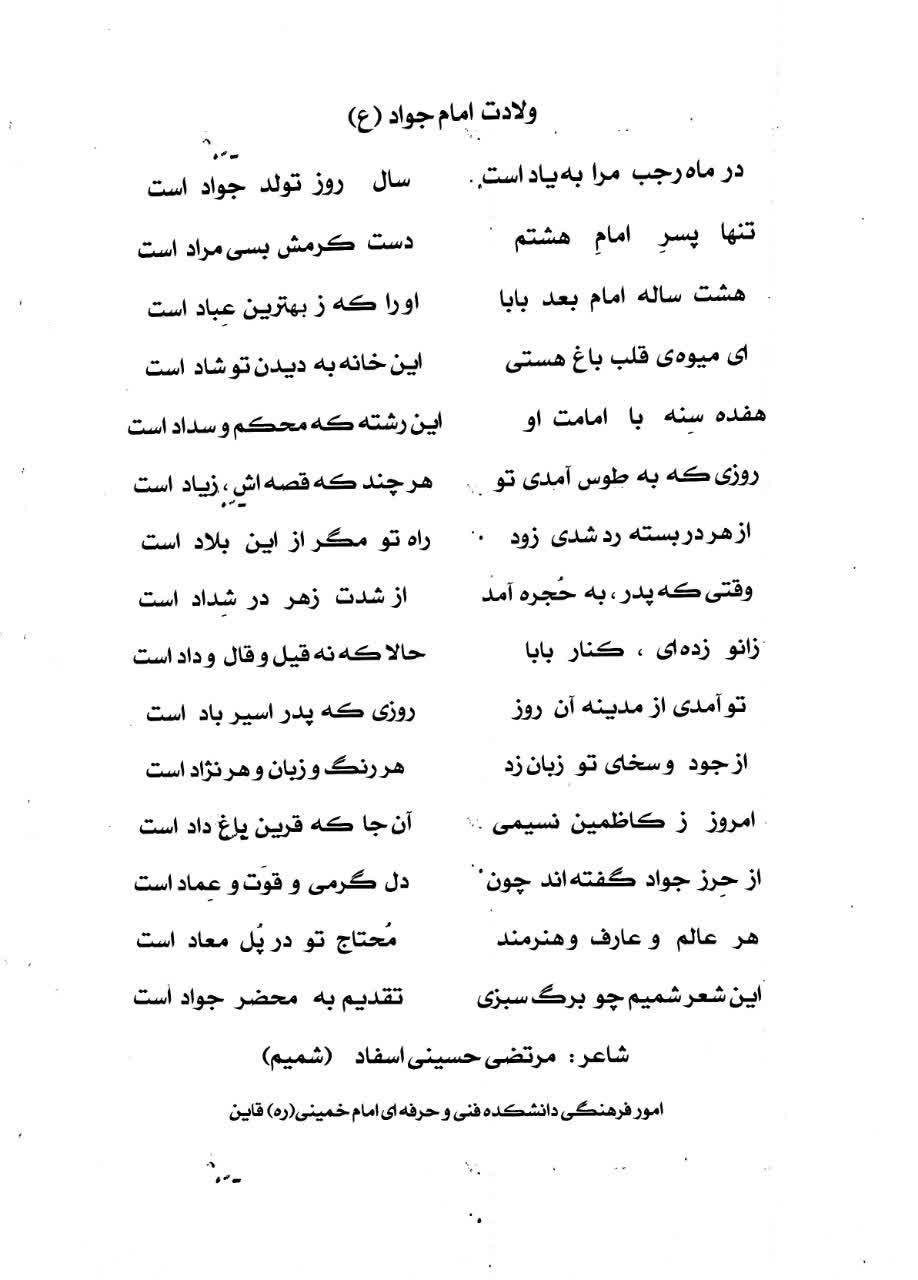 ولادت امام جواد (ع)
در ماه رجب مرا به یاد است سال روز تولد جواد است
تنها پسرِ امامِ هشتم دست کرمش بسی مراد است
هشت ساله امام بعد بابا اورا که ز بهترین عِباد است
ای میوه‌ی قلب باغ هستی این خانه به دیدن تو شاد است
هفده سِنه با امامت او این رشته که محکم و سداد است
روزی که به طوس آمدی تو هر چند که قصه اش، زیاد است
از هر در بسته رد شدی زود راه تو مگر از این بلاد است
وقتی که پدر، به حُجره آمد از شدت زهر در شِداد است
زانو زده‌ای ، کنار بابا حالا که نه قیل و قال و داد است
تو آمدی از مدینه آن روز روزی که پدر اسیر باد است
از جود و سخای تو زبان زد هر رنگ و زبان و هر نژاد است
امروز ز کاظمین نسیمی آن جا که قرین باغ داد است
از حِرز جواد گفته اند چون دل گرمی و قوَت و عِماد است
هر عالم و عارف و هنرمند مُحتاج تو در پُل معاد است
این شعر شمیم چو برگ سبزی تقدیم به محضر جواد است
شاعر : مرتضی حسینی اسفاد (شمیم)
امور فرهنگی دانشکده فنی و حرفه ای امام خمینی(ره) قاین